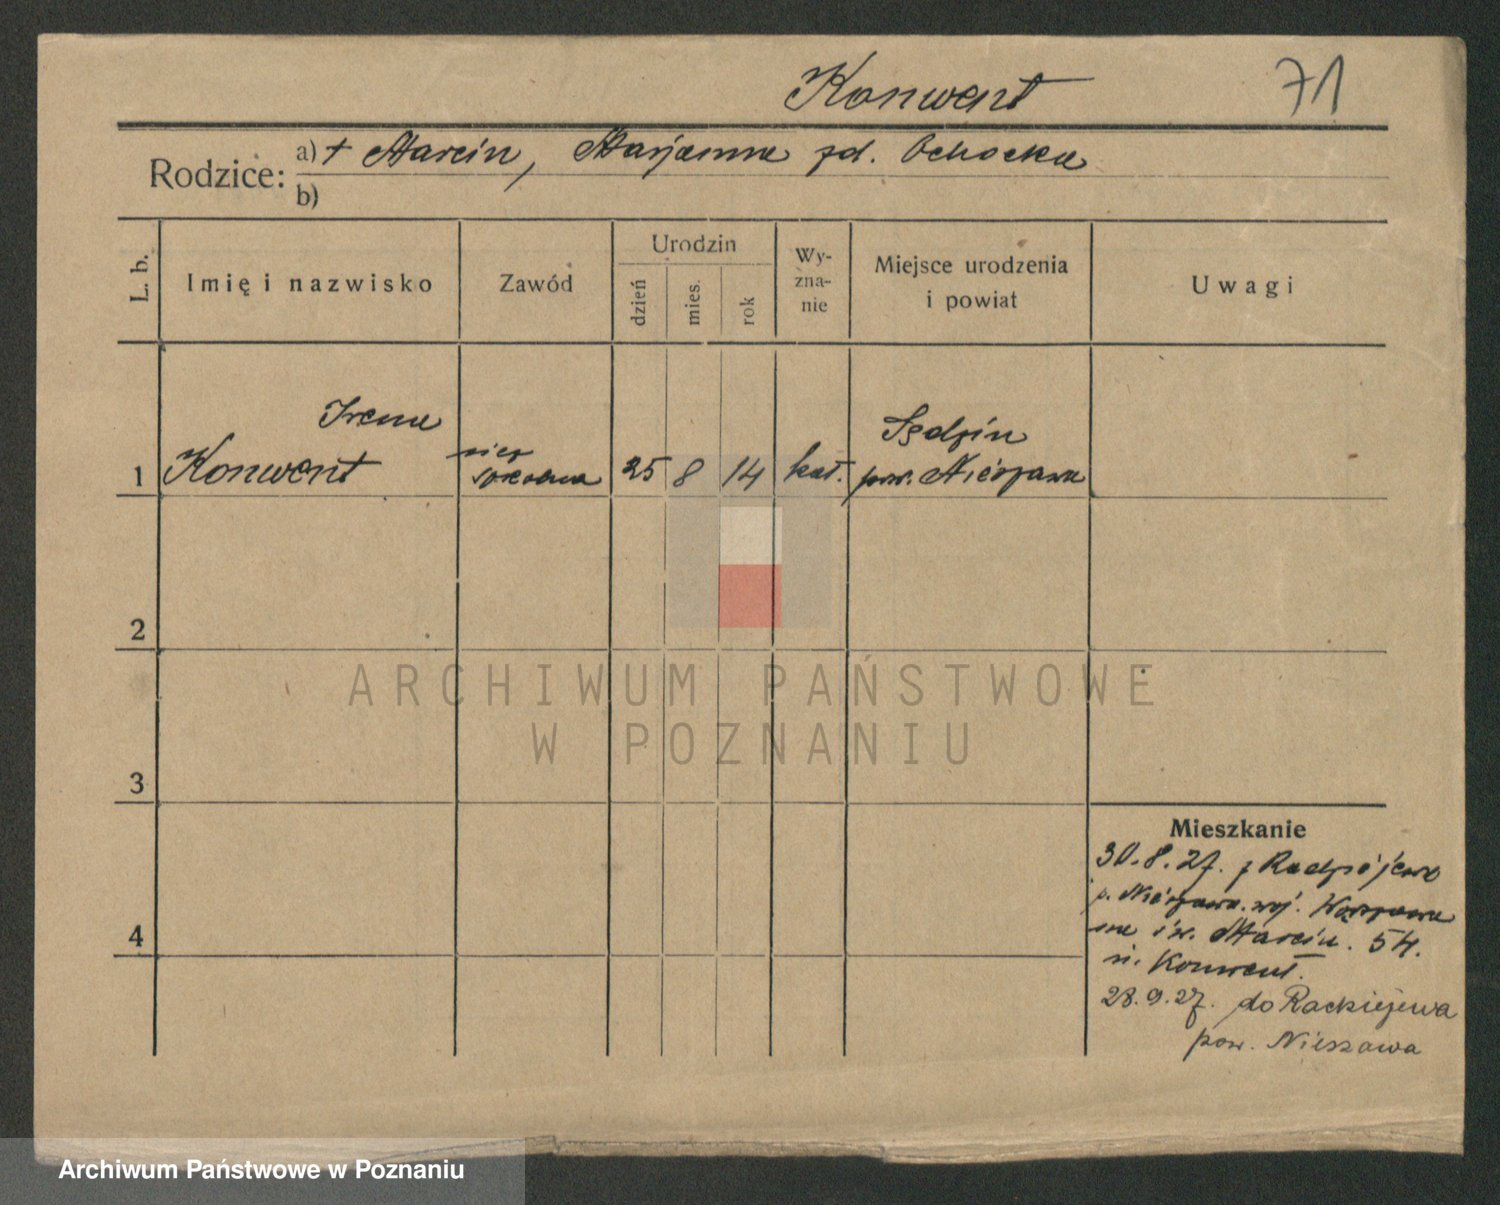 Konwent
71
Rodzice:
a) + Marcin, Marjanna zd. Ochocka
b)
L. b.
Imię i nazwisko
Zawód
Urodzin
dzień
mies.
rok
Wy-
zna-
nie
Miejsce urodzenia
i powiat
Uwagi
1
Irena
Konwent
25
8
14
kat.
Sędzin
pow. Nieszawa
2
3
4
Mieszkanie
30.8.27. z Radziejewo
p. Nieszawa. woj. Warszawa
na św. Marcin. 54.
Konwent.
28.9.27. do Rackiejewa
pow. Nieszawa
ARCHIWUM PAŃSTWOWE
W POZNANIU
Archiwum Państwowe w Poznaniu